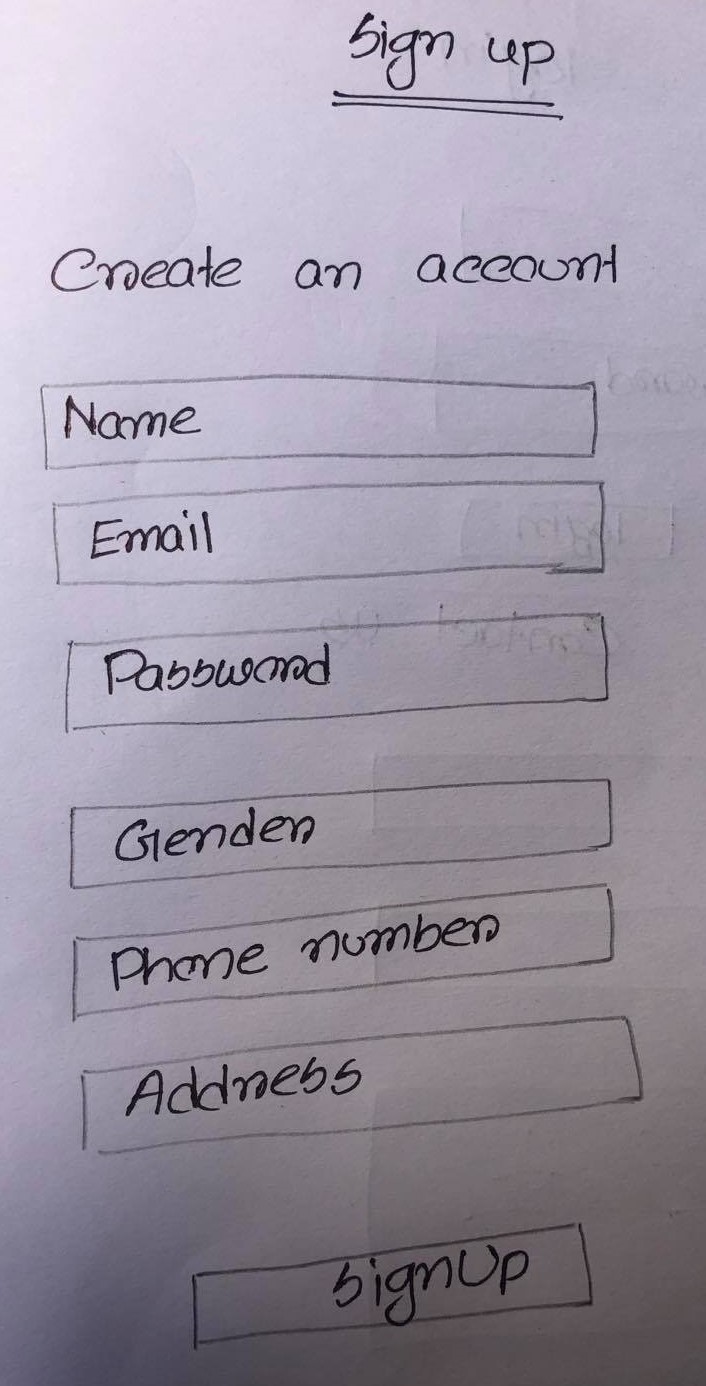 Sign up
Create an account
Name
Email
Password
Gender
Phone number
Address
SignUp